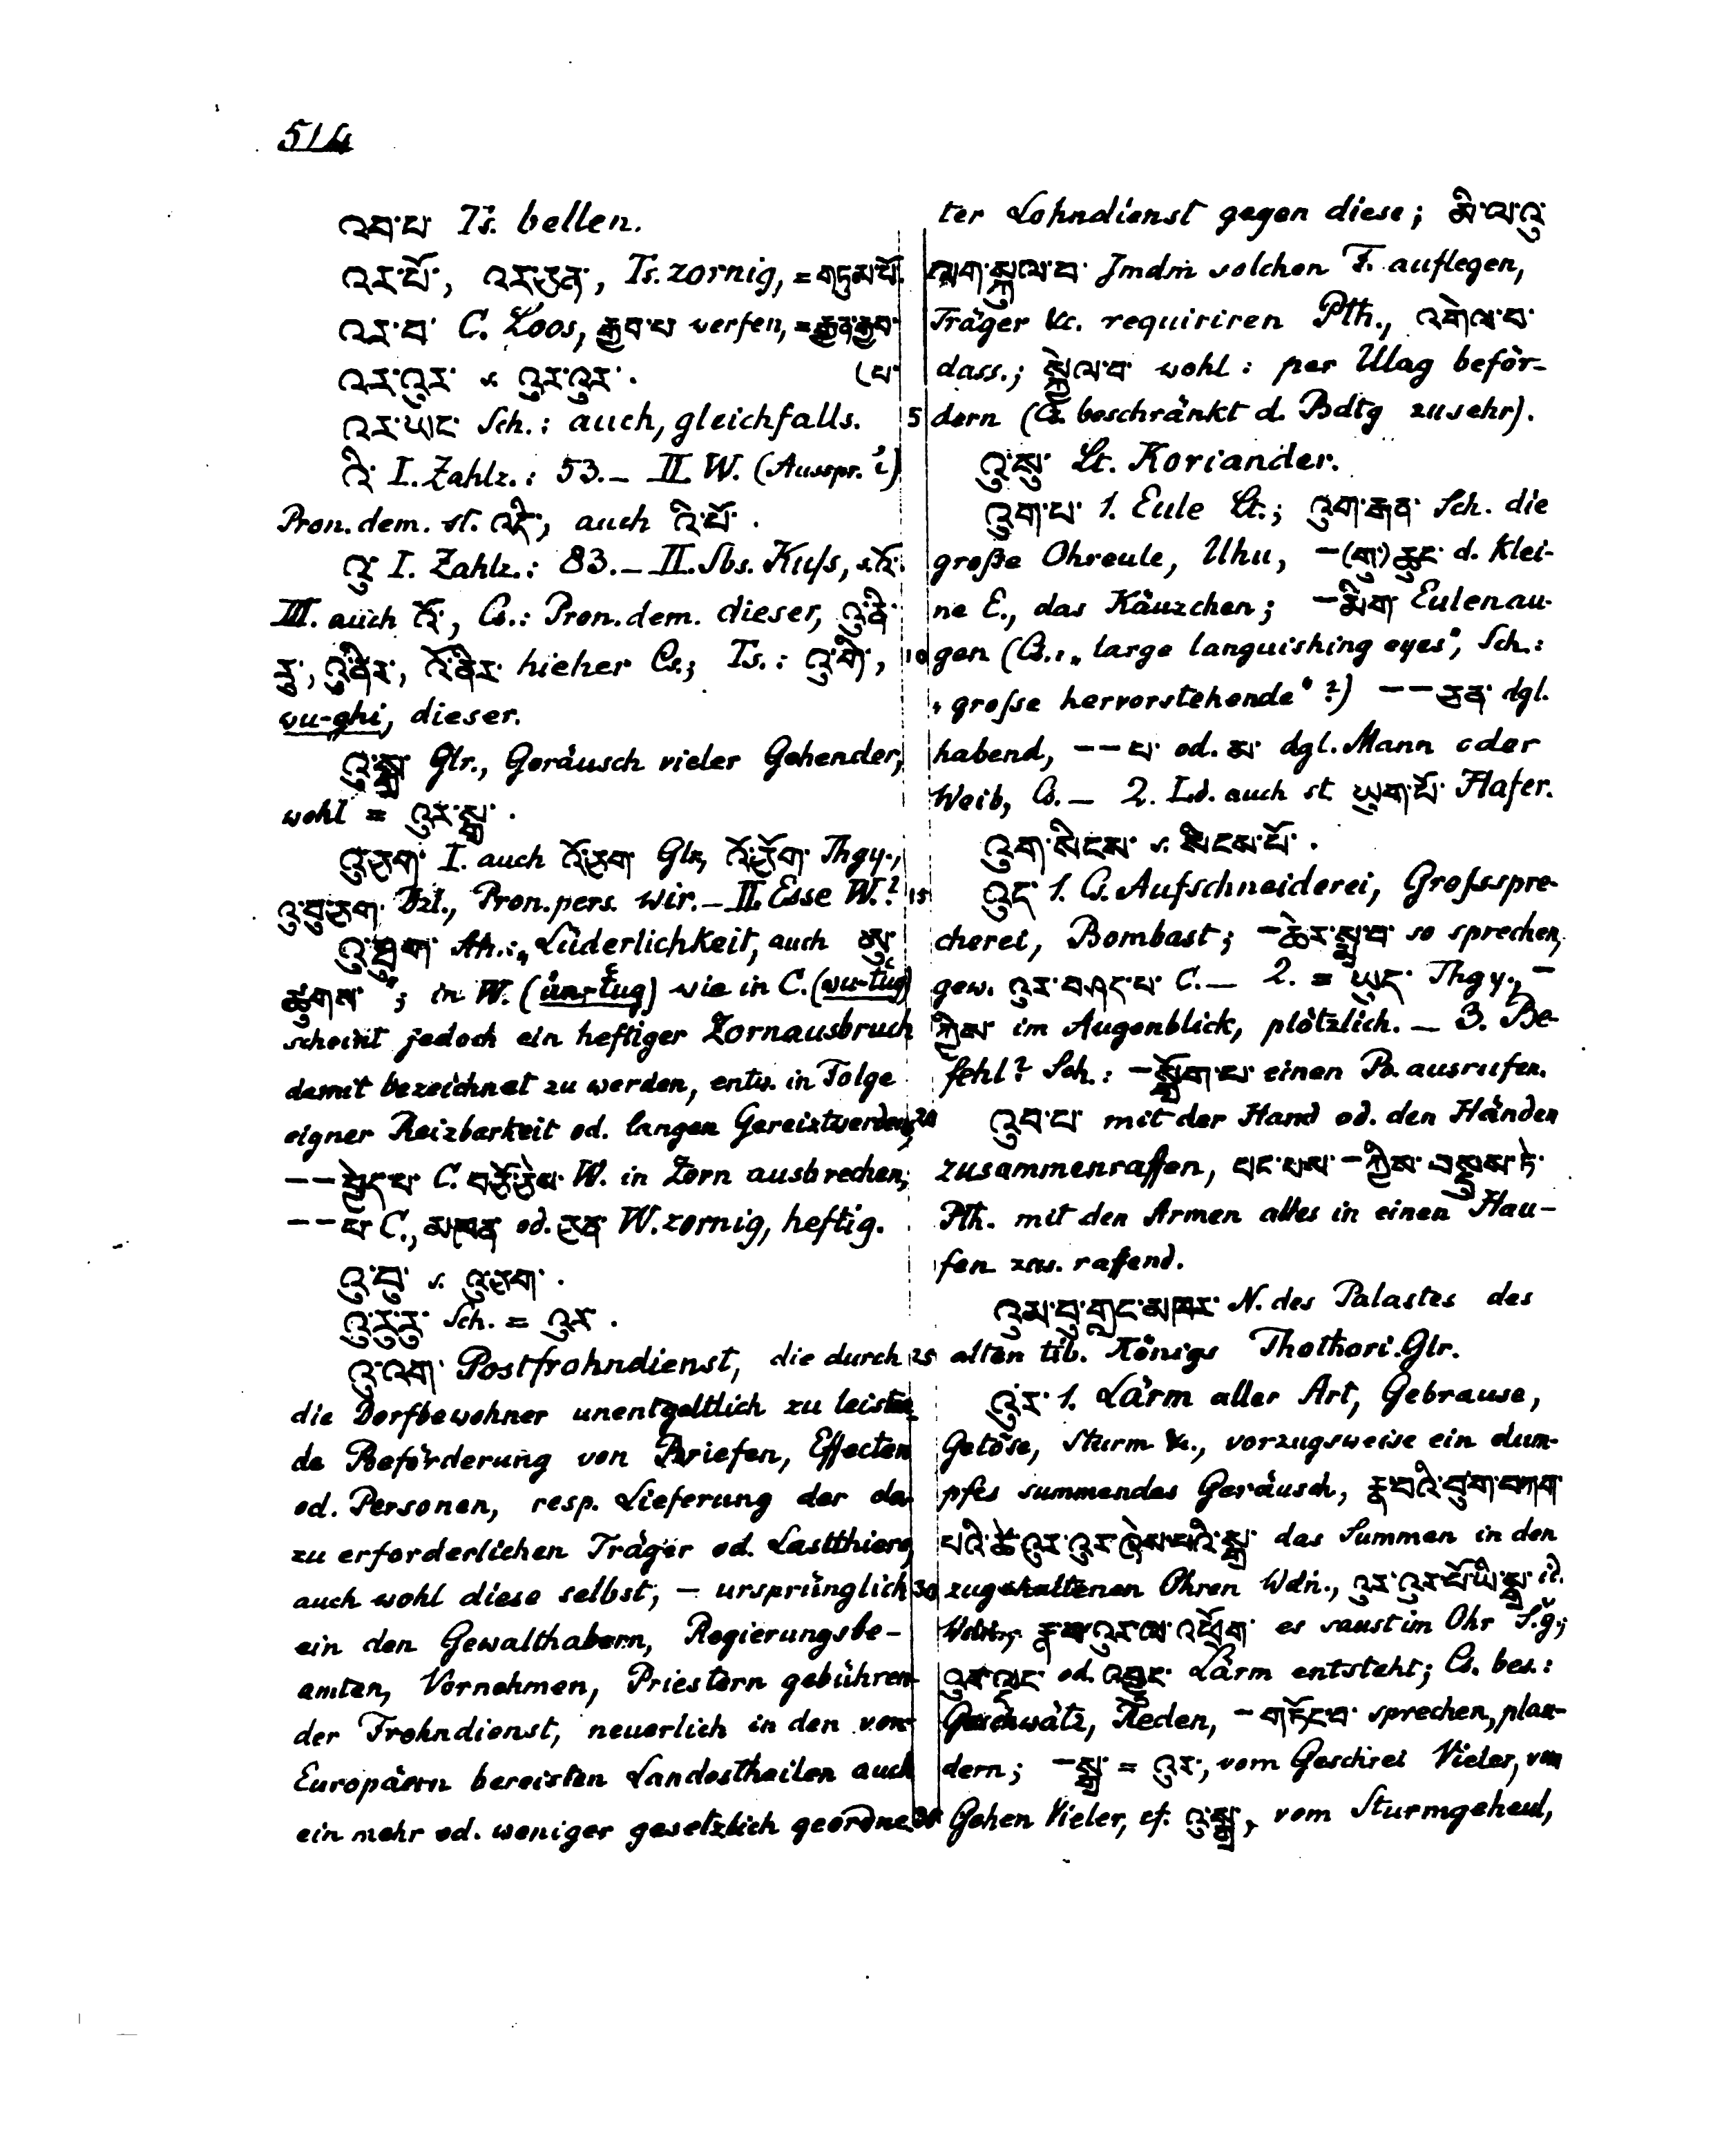 514
འབ་པ་ Ts. bellen.
འར་པོ་, འར་ཅན་, Ts. zornig, = གཏུམ་པོ་.
འར་བ་ C. Loos, རྒྱབ་པ་ werfen, = རྒྱན་རྒྱབ་
འར་འུར་ s. འུར་འུར་. (པ་
འར་ཡང་ Sch.: auch, gleichfalls.
འི་ I. Zahlz.: 53. – II. W. (Ausspr. ’i)
Pron. dem. st. འདི་, auch འི་པོ་.
འུ་ I. Zahlz.: 83. – II. Sbs. Kuſs, s. འོ་.
III. auch འོ་, Cs.: Pron. dem. dieser, འུ་ནི་
རུ་, འུ་ནིར་, འོ་ནིར་ hieher Cs.; Ts.: འུ་གི་,
wu-ghi, dieser.
འུ་སྒྲ་ Glr., Geräusch vieler Gehender,
wohl = འུར་སྒྲ་.
འུ་ཅག་ I. auch འོ་ཅག་ Glr, འོ་ཅོག་ Thgy.,
འུ་བུ་ཅག་ Dzl., Pron. pers. wir. – II. Esse W.?
འུ་ཐུག་ Ah.: „Lüderlichkeit, auch མུ་
ཚུགས་“; in W. (ún-tug) wie in C. (wu-túg)
scheint jedoch ein heftiger Zornausbruch
damit bezeichnet zu werden, entw. in Folge
eigner Reizbarkeit od. langen Gereiztwerdens,
–– བྱེད་པ་ C. བཅོ་ཅེས་ W. in Zorn ausbrechen;
–– པ་ C., མཁན་ od. ཅན་ W. zornig, heftig.
འུ་བུ་ s. འུ་ཅག་.
འུ་རུ་རུ་ Sch. = འུར་.
འུ་ལག་ Postfrohndienst, die durch
die Dorfbewohner unentgeltlich zu leisten
de Beförderung von Briefen, Effecten
od. Personen, resp. Lieferung der da
zu erforderlichen Träger od. Lastthiere,
auch wohl diese selbst; – ursprünglich
ein den Gewalthabern, Regierungsbe–
amten, Vornehmen, Priestern gebühren–
der Frohndienst, neuerlich in den von
Europäern bereisten Landestheilen auch
ein mehr od. weniger gesetzlich geordne
5
10
15
20
25
30
35
ter Lohndienst gegen diese; མི་ལ་འུ་
ལག་སྐུལ་བ་ Jmdm solchen F. auflegen,
Träger &c. requiriren Pth., འགེལ་བ་
dass.; སྐྱེལ་བ་ wohl: per Ulag beför–
dern (Cs. beschränkt d. Bdtg zusehr).
འུ་སུ་ Lt. Koriander.
འུག་པ་ 1. Eule Lt.; འུག་རྒན་ Sch. die
große Ohreule, Uhu, –(གུ་)ཆུང་ d. Klei–
ne E., das Käuzchen; –མིག་ Eulenau–
gen (Cs.: „large languishing eyes“, Sch.:
„grofse hervorstehende“?) ––ཅན་ dgl.
habend, ––པ་ od. མ་ dgl. Mann oder
Weib, Cs. – 2. Ld. auch st. ཡུག་པོ་ Hafer.
འུག་སིངས་ s. སིངས་པོ་.
འུད་ 1. Cs. Aufschneiderei, Grofsspre–
cherei, Bombast; –ཆེར་སྨྲ་བ་ so sprechen,
gew. འུར་བཤད་པ་ C. – 2. = ཡུད་ Thgy., –
ཀྱིས་ im Augenblick, plötzlich. – 3. Be–
fehl? Sch.: –སྒྲོག་པ་ einen B. ausrufen.
འུབ་པ་ mit der Hand od. den Händen
zusammenraffen, པང་པས་ –ཀྱིས་ བསྡུམས་ཏེ་
Pth. mit den Armen alles in einen Hau–
fen zus. raffend.
འུམ་བུ་གླང་མཁར་ N. des Palastes des
alten tib. Königs Thothori. Glr.
འུར་ 1. Lärm aller Art, Gebrause,
Getöse, Sturm &c., vorzugsweise ein dum–
pfes summendes Geräusch, རྣ་བའི་བུག་བཀག་
པའི་ཚེ་འུར་འུར་ཞེས་པའི་སྒྲ་ das Summen in den
zugehaltenen Ohren Wdn., འུར་འུར་པོ་ཡི་སྒྲ་ id.
རྣ་བ་འུར་ལ་འཁྲོག་ es saust im Ohr S.g.;
འུར་ལང་ od. འབྱུང་ Lärm entsteht; Cs. bes.:
Geschwätz, Reden, –གཏོང་བ་ sprechen, plau–
dern; –སྒྲ་ = འུར་, vom Geschrei Vieler, vom
Gehen Vieler, cf. འུ་སྒྲ་, vom Sturmgeheul,